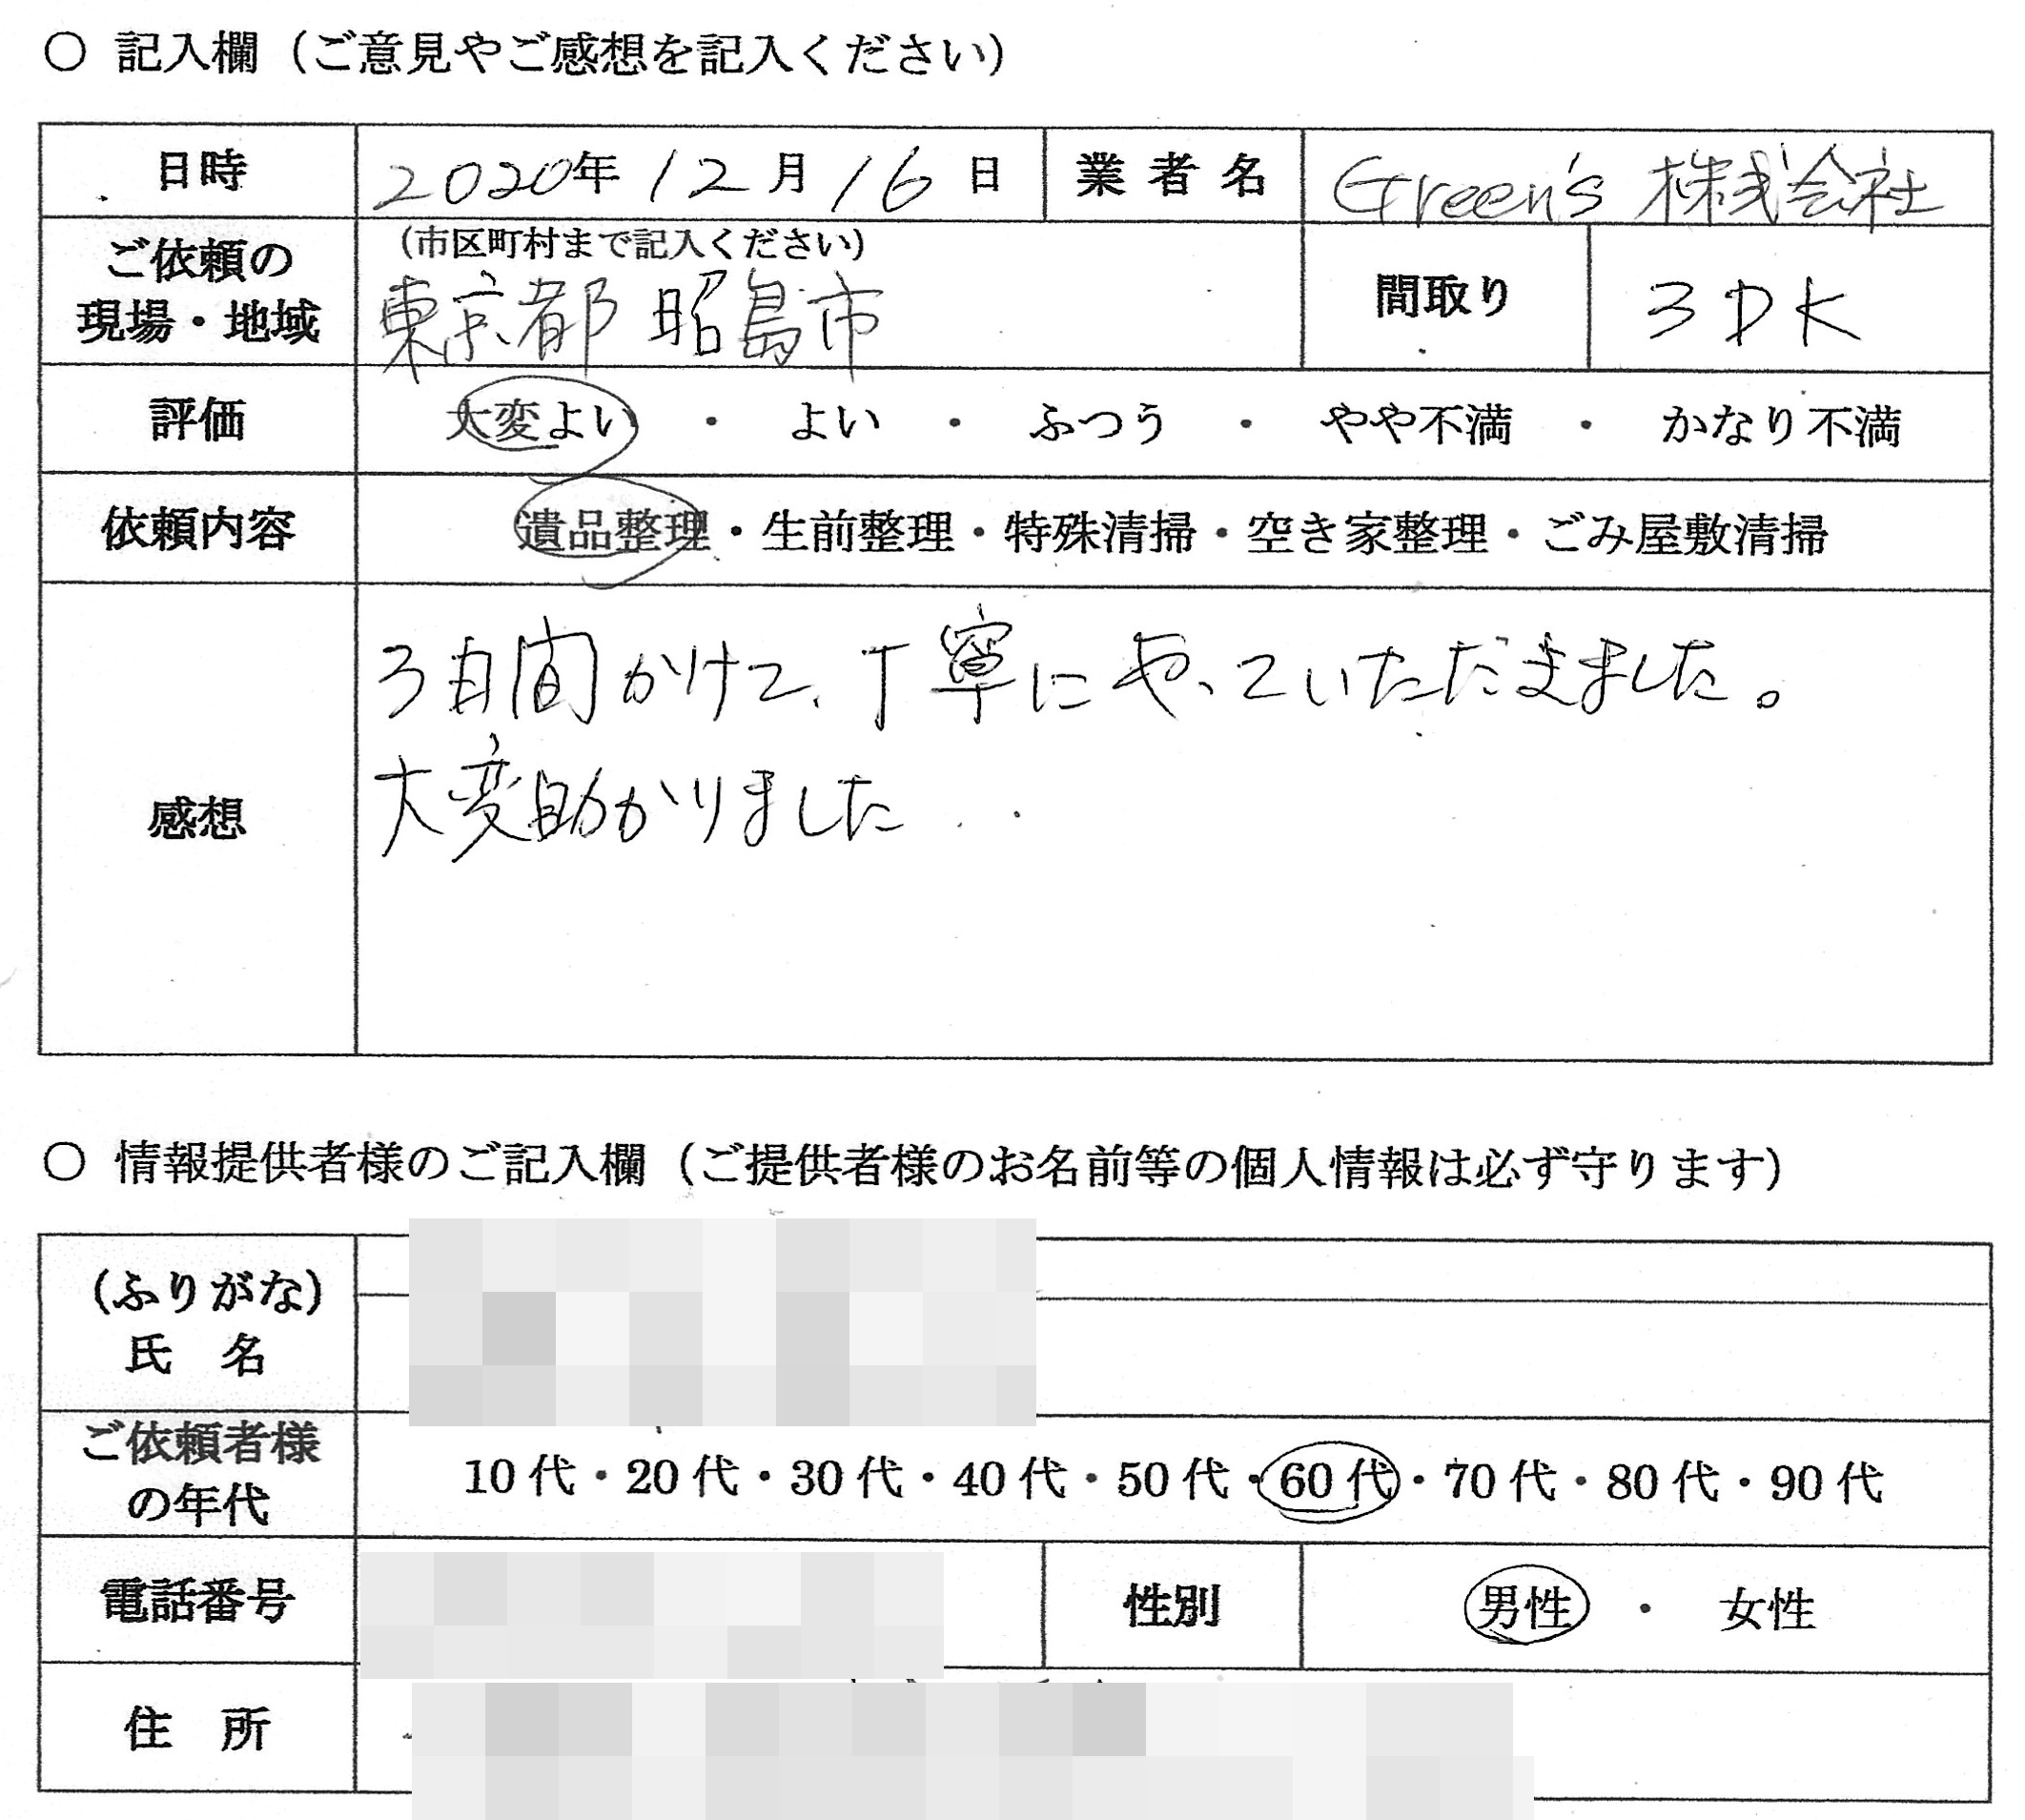 ○ 記入欄（ご意見やご感想を記入ください）
日時 2020年 12月 16日 業者名 Green's 株式会社
ご依頼の現場・地域 （市区町村まで記入ください）
東京都 昭島市 間取り 3DK
評価 大変よい ・ よい ・ ふつう ・ やや不満 ・ かなり不満
依頼内容 遺品整理・生前整理・特殊清掃・空き家整理・ごみ屋敷清掃
感想
3日間かけて、丁寧にやっていただきました。
大変助かりました
○ 情報提供者様のご記入欄（ご提供者様のお名前等の個人情報は必ず守ります）
（ふりがな）
氏 名
ご依頼者様
の年代 10代・20代・30代・40代・50代・60代・70代・80代・90代
電話番号 性別 男性 ・ 女性
住 所